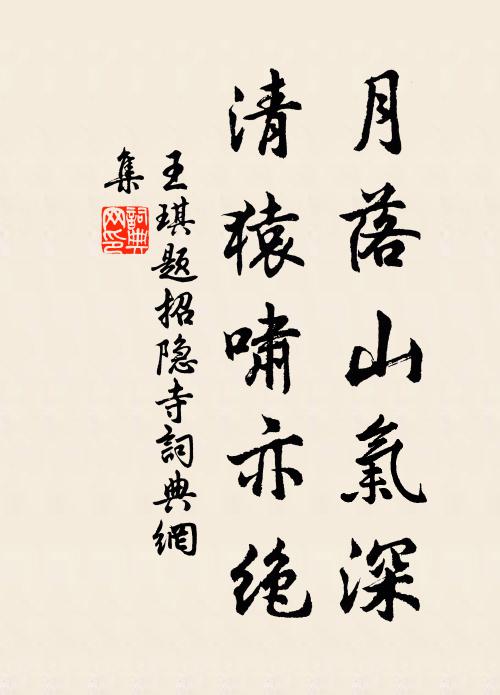 月落山氣深
清猿嘯亦绝
王琪题招隐寺詞典網
集
詞典
网印